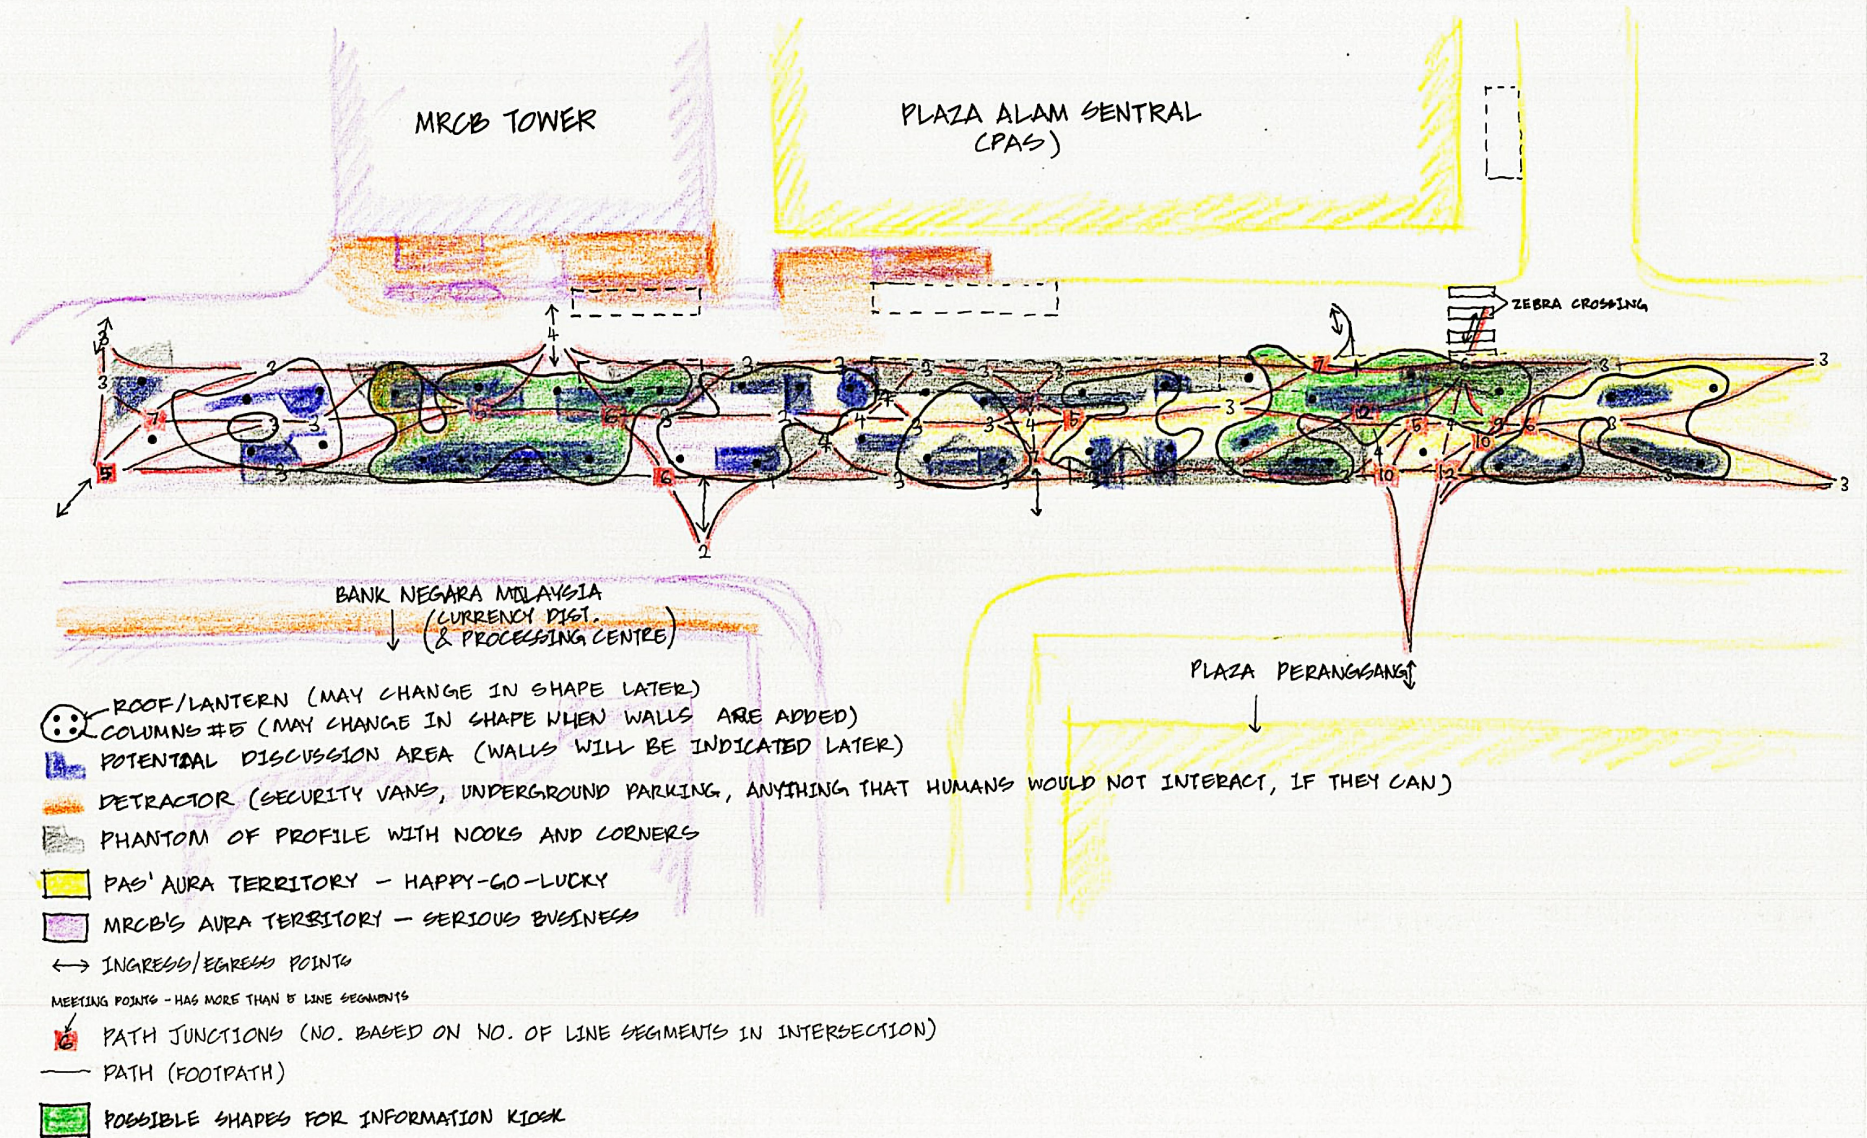 MRCB TOWER
PLAZA ALAM SENTRAL
(PAS)
ZEBRA CROSSING
BANK NEGARA MALAYSIA
(CURRENCY DIST.
& PROCESSING CENTRE)
PLAZA PERANGSANG
ROOF/LANTERN (MAY CHANGE IN SHAPE LATER)
COLUMNS #5 (MAY CHANGE IN SHAPE WHEN WALLS ARE ADDED)
POTENTIAL DISCUSSION AREA (WALLS WILL BE INDICATED LATER)
DETRACTOR (SECURITY VANS, UNDERGROUND PARKING, ANYTHING THAT HUMANS WOULD NOT INTERACT, IF THEY CAN)
PHANTOM OF PROFILE WITH NOOKS AND CORNERS
PAS' AURA TERRITORY - HAPPY-GO-LUCKY
MRCB'S AURA TERRITORY - SERIOUS BUSINESS
INGRESS/EGRESS POINTS
MEETING POINTS - HAS MORE THAN 5 LINE SEGMENTS
6 PATH JUNCTIONS (NO. BASED ON NO. OF LINE SEGMENTS IN INTERSECTION)
PATH (FOOTPATH)
POSSIBLE SHAPES FOR INFORMATION KIOSK